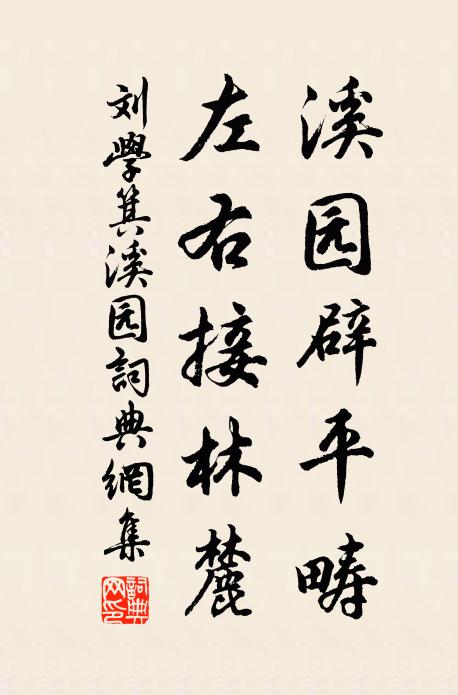 溪园辟平畴
左右接林麓
刘學箕溪园詞典網集
詞典网印